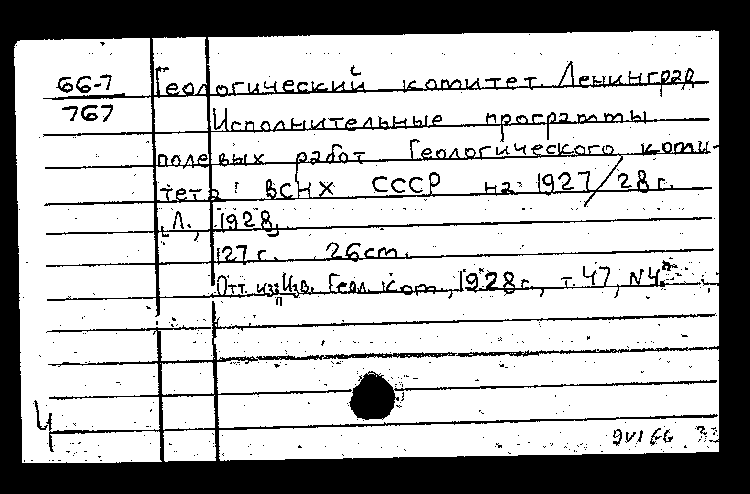 66-7 Геологический комитет. Ленинград
767 Исполнительные программы
полевых работ Геологического коми-
тета ВСНХ СССР на 1927/28 г.
Л., 1928,
127 с. 26 ст.
Отт. из "Изв. Геол. Ком., 1928 г., т. 47, N4."
4
9VI66 33